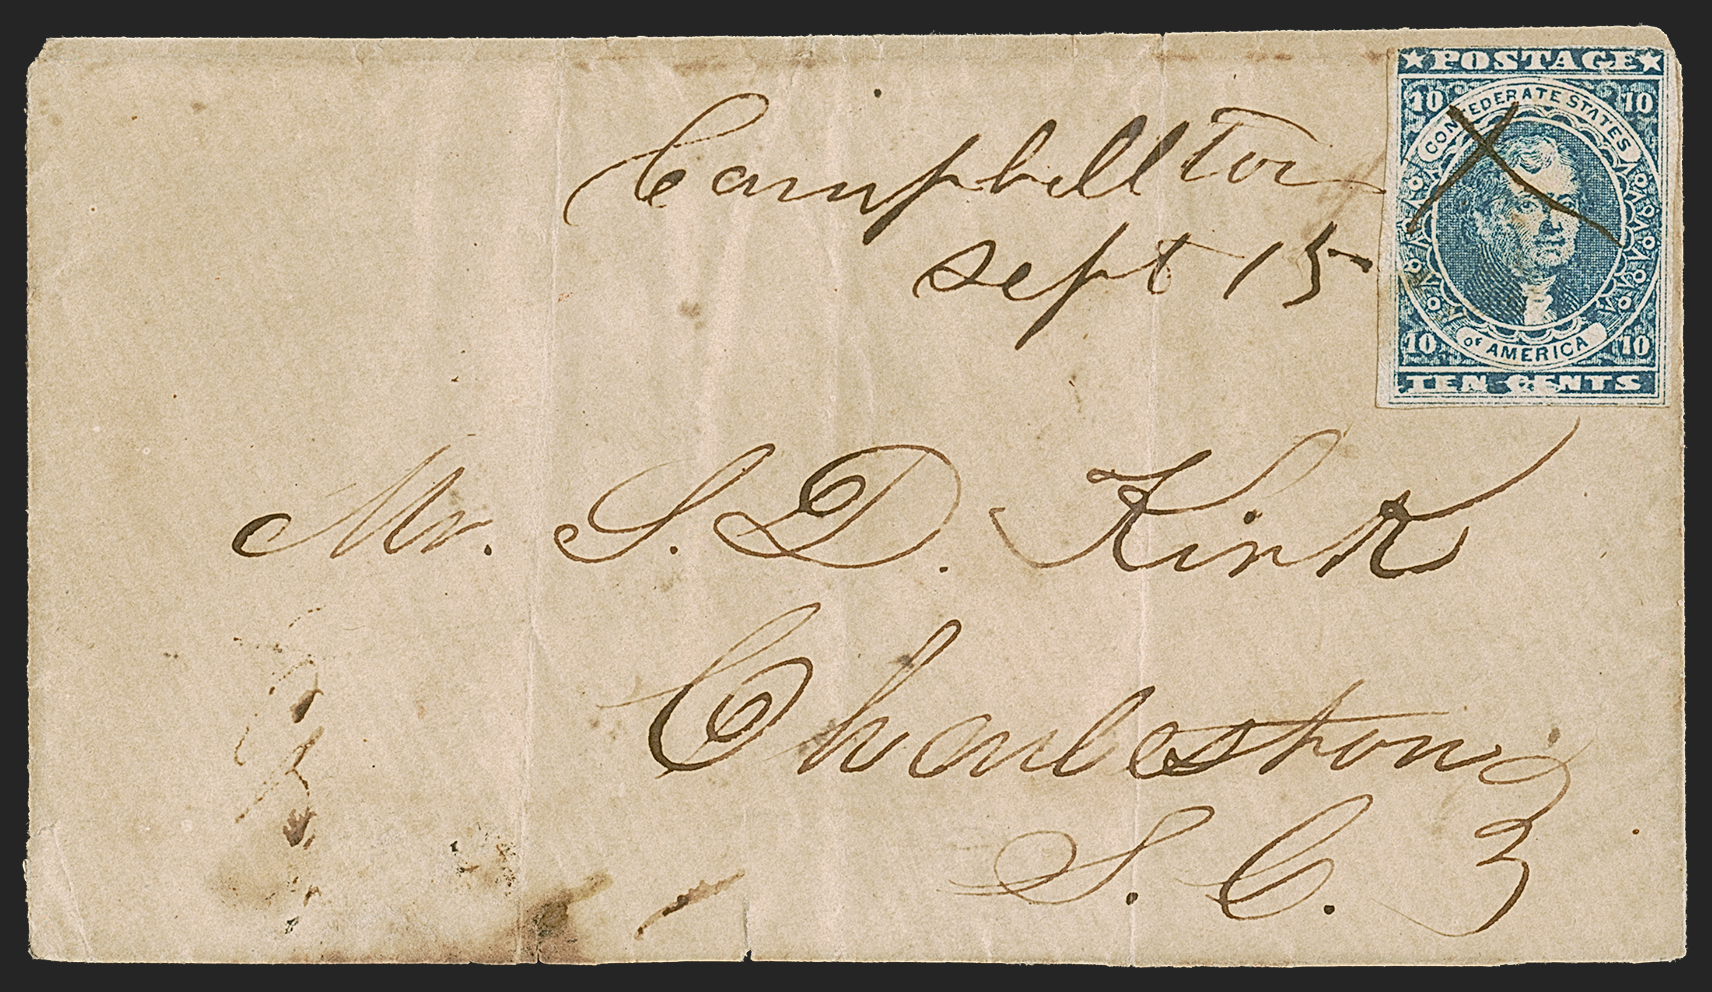 Campbellton
sept 15
★POSTAGE★
10 10
CONFEDERATE STATES
OF AMERICA
10 10
TEN CENTS
Mr. S. D. Kirk
Charleston
S. C.